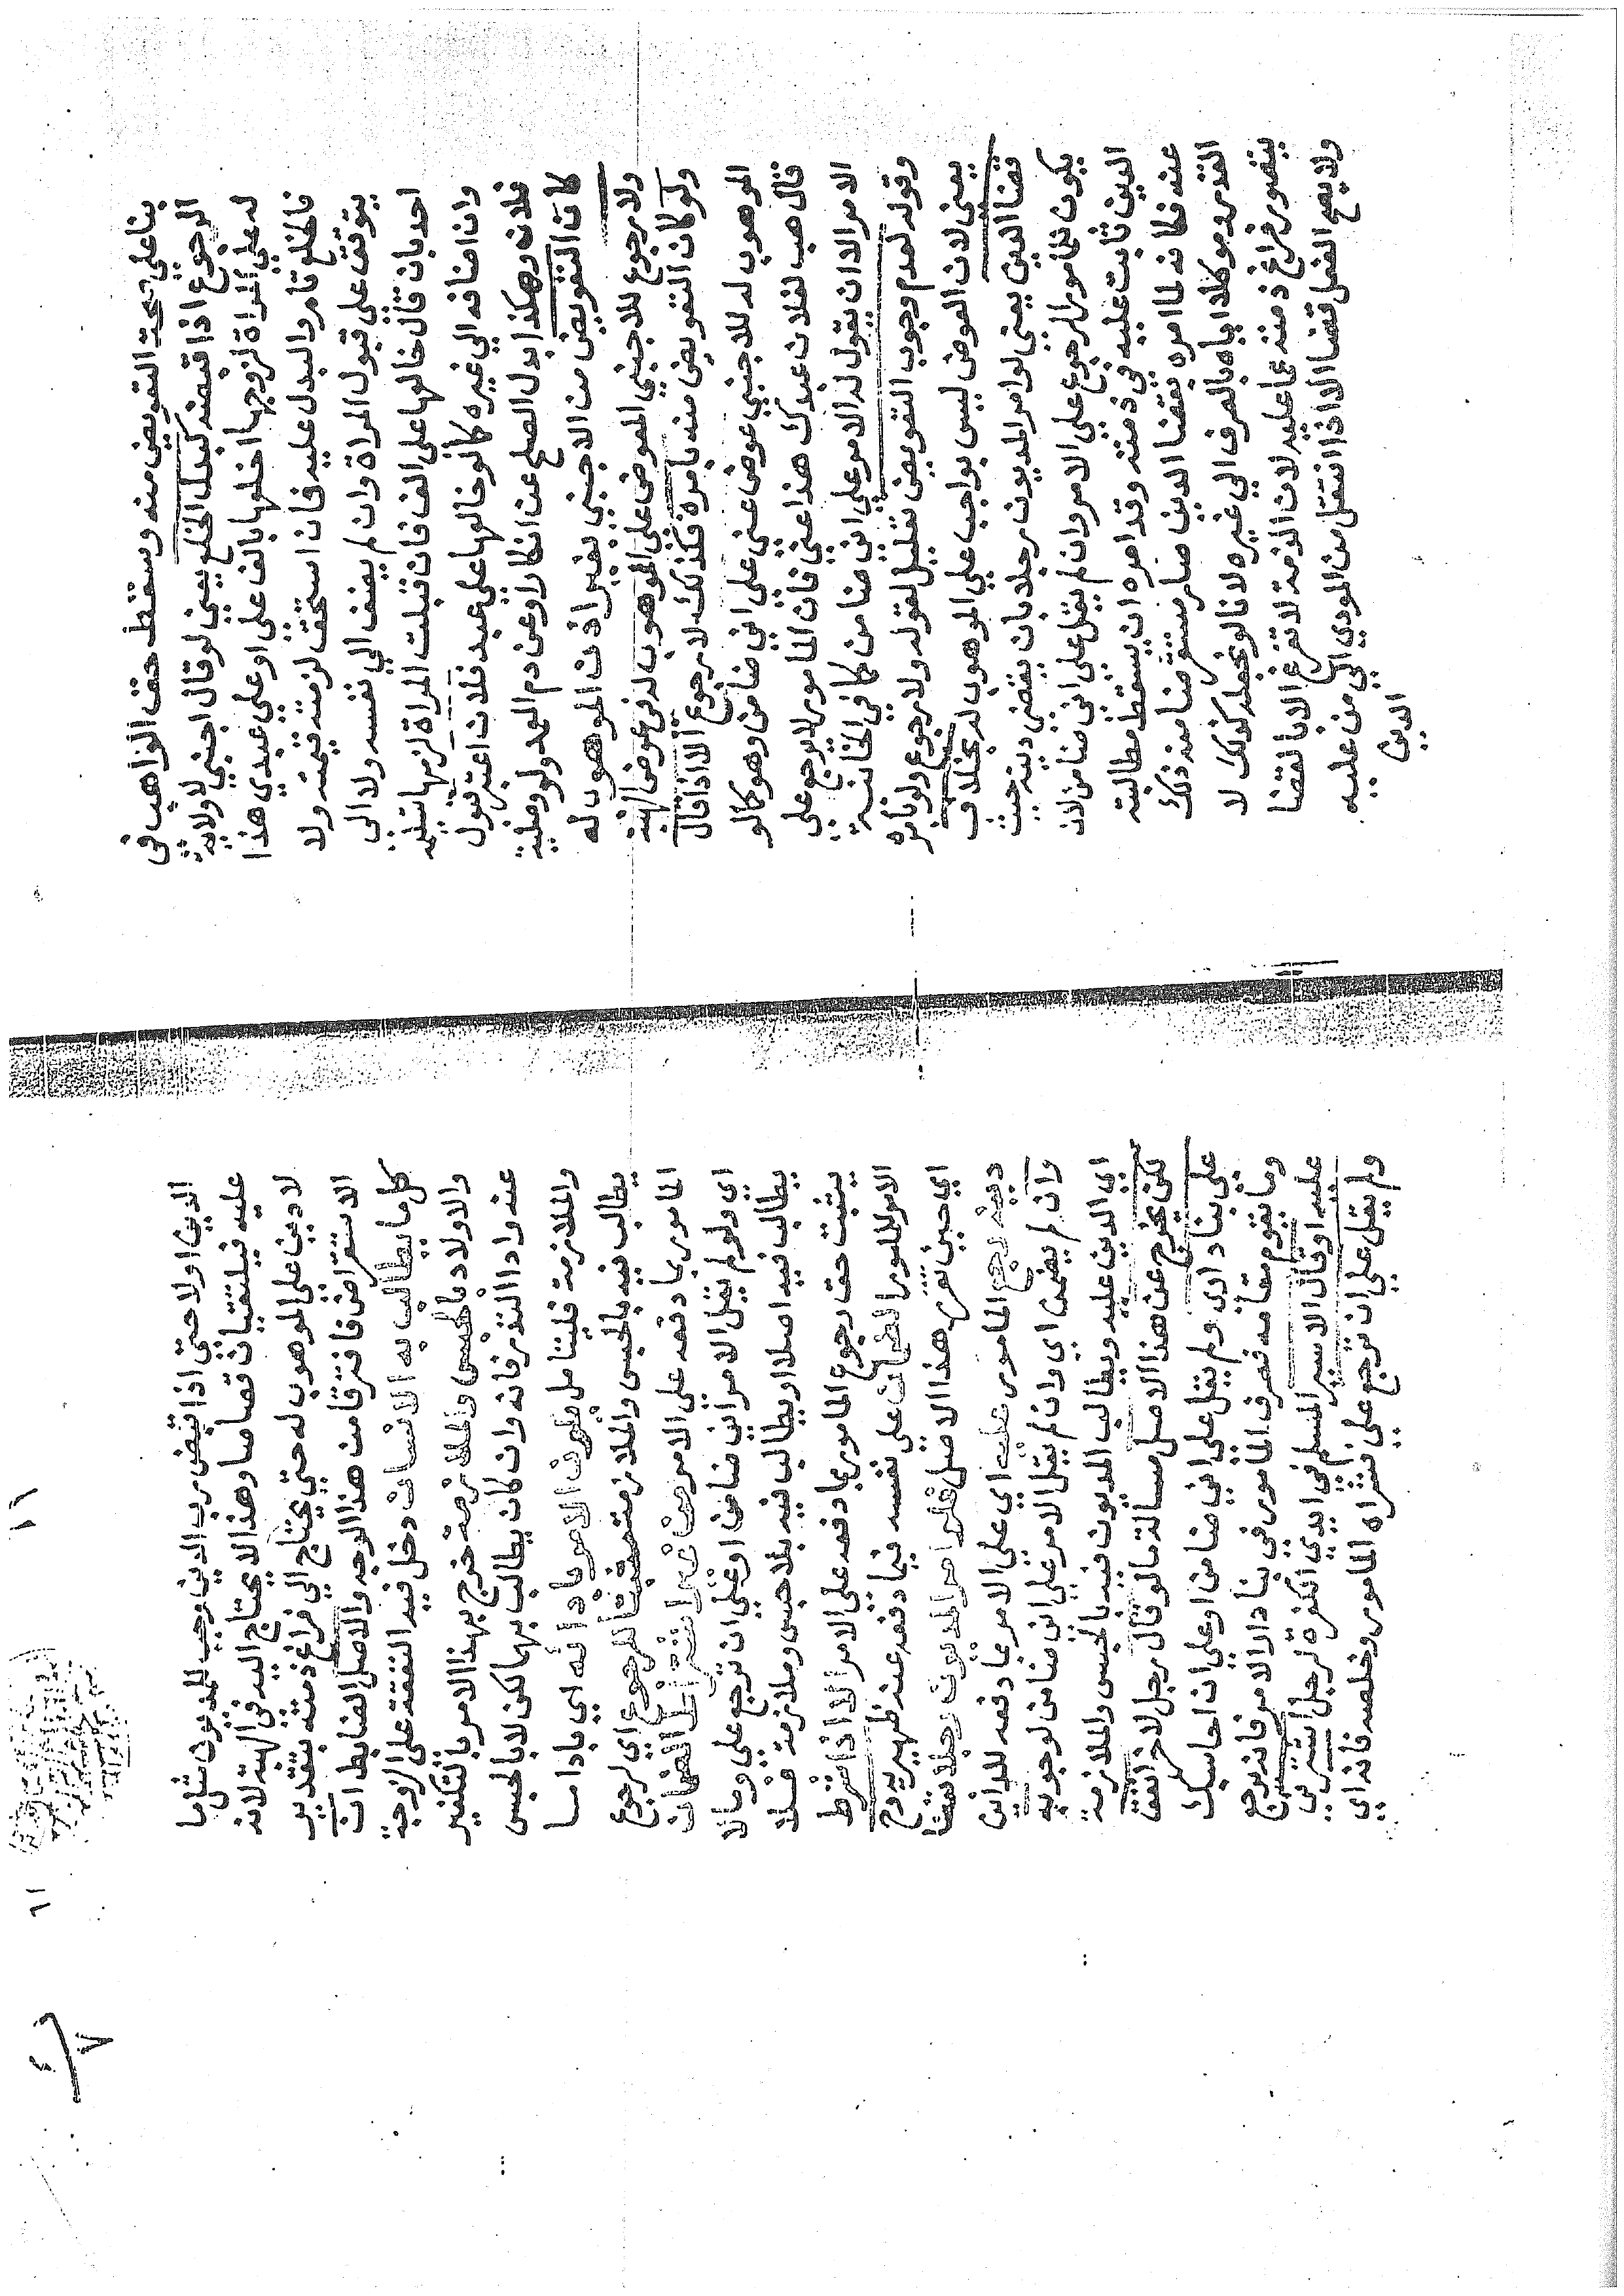 بنا علي صحة التعويض منه وسقط حق الواهب في
الرجوع اذا قبضه كبدل الخلع يعني لو قال اجنبي لا ولاية
له علي المراة لزوجها اخلعها بالف علي او علي عبدي هذا
فالخلع تام والبدل عليه فان استحق لزمته قيمته ولا
يتوقف علي قبول المراة وان لم يضف الي نفسه ولا الي
احد بان قال خالعها علي الف فان قبلت المراة لزمها تسليمه
وان اضافه الي غيره كما لو خالعها علي عبد فلان اعتبر قبول
فلان وهكذا بدل الصلح عن انكار او عن دم العمد ولو وصلية
كان التعويض من الاجنبي بغير اذن الموهوب له
ولا رجوع للاجنبي المعوض علي الموهوب له في عوض الهبة
ولو كان التعويض منه بامره فكذلك لا رجوع الا اذا قال
الموهوب له للاجنبي عوض عني علي اني ضامن وهو كما لو
قال هب لفلان عبدك هذا عني فان المامور لا يرجع علي
الامر الا ان يقول له الامر علي اني ضامن كما في الخانية
وقوله لعدم وجوب التعويض تعليل لقوله ولا رجوع ولو بامره
يعني لان العوض ليس بواجب علي الموهوب له بخلاف
قضا الدين يعني لو امر المديون رجلا بان يقضي دينه حيث
يكون للمامور الرجوع علي الامر وان لم يقل علي اني ضامن لان
الدين ثابت عليه في ذمته وقد امره ان يسقط مطالبته
عنه فكانه لما امره بقضا الدين صار مستقرضا منه ذلك
القدر وموكلا اياه بالصرف الي غيره لانا لو لم نجعله كذلك لا
يتصور فراغ ذمته عما عليه لان الذمة لا تفرغ الا بالقضا
ولا يصح الفعل قضا الا اذا انتقل من المودي الي من عليه
الدين
الدين اولا حتي اذا قبض رب الدين وجب للمديون مثل ما
عليه فيلتقيان قصاصا وهذا لا يحتاج اليه في الهبة لانه
لا دين علي الموهوب له حتي يحتاج الي فراغ ذمته بتقدير
الاستقراض فافترقا من هذا الوجه والاصل الضابط ان
كل ما يطالب به الانسان دخل فيه النفقة علي الزوجة
والاولاد بالحبس والملازمة خرج بهذا الامر بالتكفير
عنه وادا النذر فانه وان كان يطالب بهما لكن لا بالحبس
والملازمة فليتامل يكون الامر بادائه اي بادا ما
يطالب فيه بالحبس والملازمة مثبتا للرجوع اي لرجوع
المامور بما دفعه علي الامر من غير اشتراط الضمان
اي ولو لم يقل الامر اني ضامن او علي ان ترجع علي وما لا
يطالب فيه اصلا او يطالب فيه بلا حبس وملازمة فلا
يثبت حق رجوع المامور بما دفعه علي الامر الا اذا شرط
الامر للمامور الضمان علي نفسه فيما دفعه عند ظهير يروح
اي حين تقرر هذا الاصل فلو امر المديون رجلا بقضا
دينه رجع المامور عليه اي علي الامر بما دفعه للداين
وان لم يضمن اي وان لم يقل الامر علي اني ضامن لوجوبه
اي الدين عليه ويطالب المديون فيه بالحبس والملازمة
لكن يخرج عن هذا الاصل مسالة ما لو قال رجل لاخر انفق
علي بنا داري ولم يقل علي اني ضامن او علي ان احاسبك
وما يقوم مقامه فصرف المامور في بنا دار الامر فانه يرجع
عليه او قال الاسير المسلم في ايدي الكفرة لرجل اشتريني
ولم يقل علي ان ترجع علي فشراه المامور وخلصه فانه اي